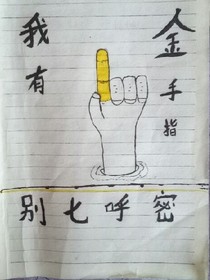 我有
金手指
别七呼密